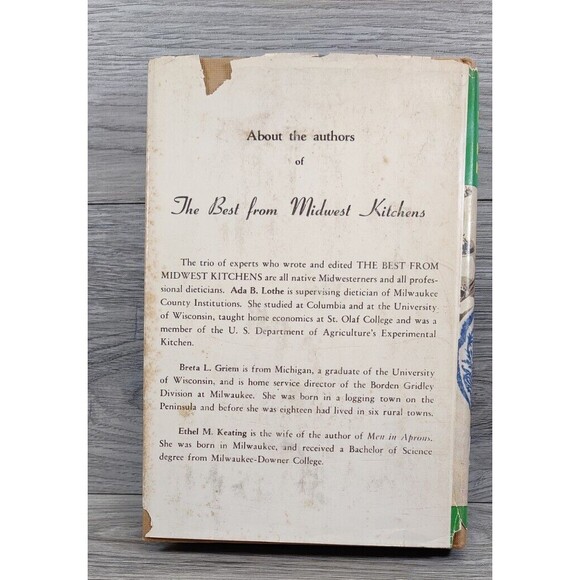 About the authors
of
The Best from Midwest Kitchens
The trio of experts who wrote and edited THE BEST FROM
MIDWEST KITCHENS are all native Midwesterners and all profes-
sional dieticians. Ada B. Lothe is supervising dietician of Milwaukee
County Institutions. She studied at Columbia and at the University
of Wisconsin, taught home economics at St. Olaf College and was a
member of the U. S. Department of Agriculture's Experimental
Kitchen.
Breta L. Griem is from Michigan, a graduate of the University
of Wisconsin, and is home service director of the Borden Gridley
Division at Milwaukee. She was born in a logging town on the
Peninsula and before she was eighteen had lived in six rural towns.
Ethel M. Keating is the wife of the author of Men in Aprons.
She was born in Milwaukee, and received a Bachelor of Science
degree from Milwaukee-Downer College.